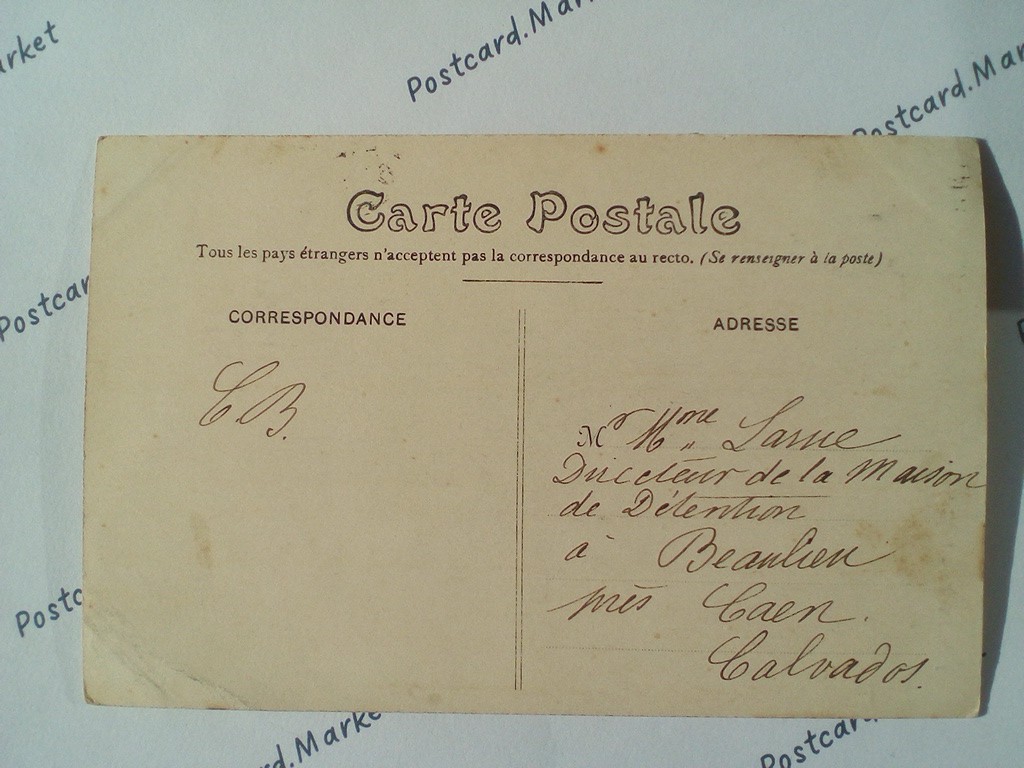 arket
Postcard.Mar
Postcard.Mar
Carte Postale
Tous les pays étrangers n'acceptent pas la correspondance au recto. (Se renseigner à la poste)
Postcar
CORRESPONDANCE
ADRESSE
C B.
Mr Mme
Directeur de la Maison
de Détention
à Beaulieu
près Caen.
Calvados.
Postc
d.Marke
Postcar